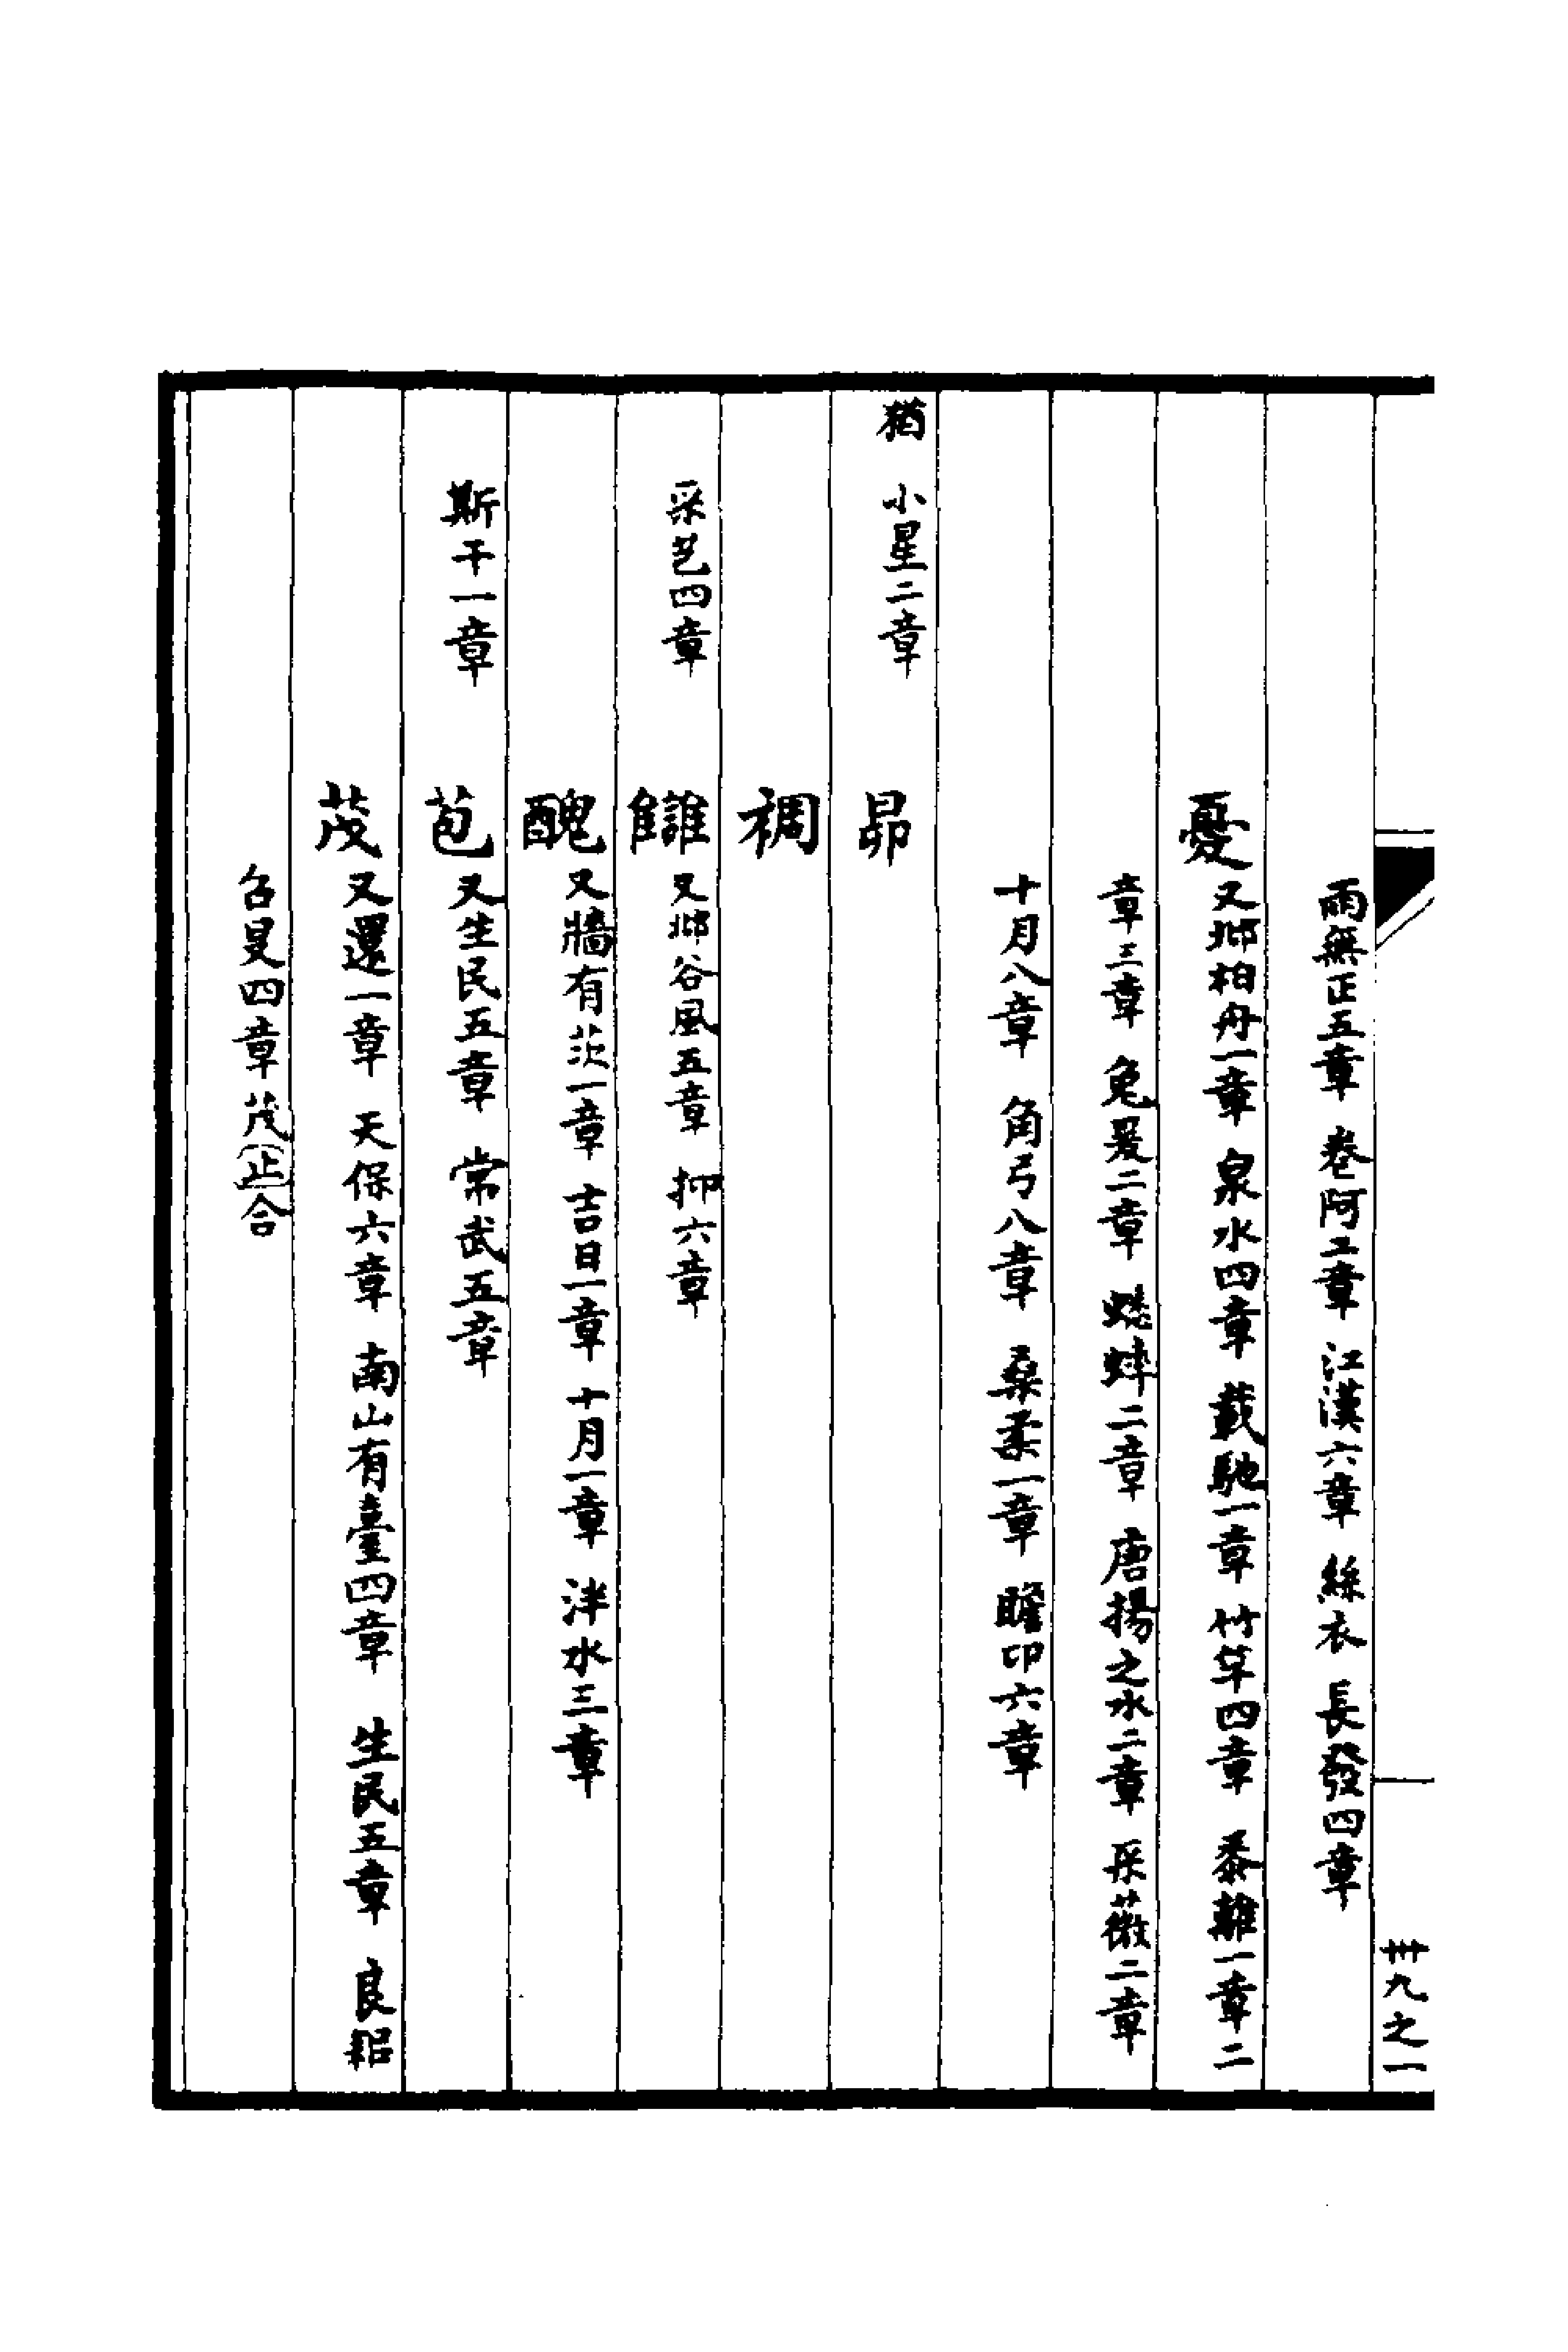 卅九之一
雨無正五章 卷阿二章 江漢六章 絲衣 長發四章
憂又邶柏舟一章 泉水四章 載馳一章 竹竿四章 黍離一章二
章三章 兔爰二章 蟋蟀二章 唐揚之水二章 采薇二章
十月八章 角弓八章 桑柔一章 瞻卬六章
猶 小星二章 昴
裯
采芑四章 讎又邶谷風五章 抑六章
醜又牆有茨一章 吉日一章 十月一章 泮水三章
斯干一章 苞又生民五章 常武五章
茂又還一章 天保六章 南山有臺四章 生民五章 良耜
召旻四章茂止合